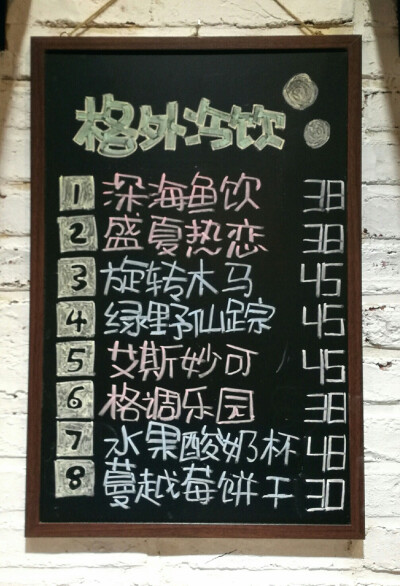 格外冷饮
1 深海鱼饮 38
2 盛夏热恋 38
3 旋转木马 45
4 绿野仙踪 45
5 艾斯妙可 45
6 格调乐园 38
7 水果酸奶杯 48
8 蔓越莓饼干 30